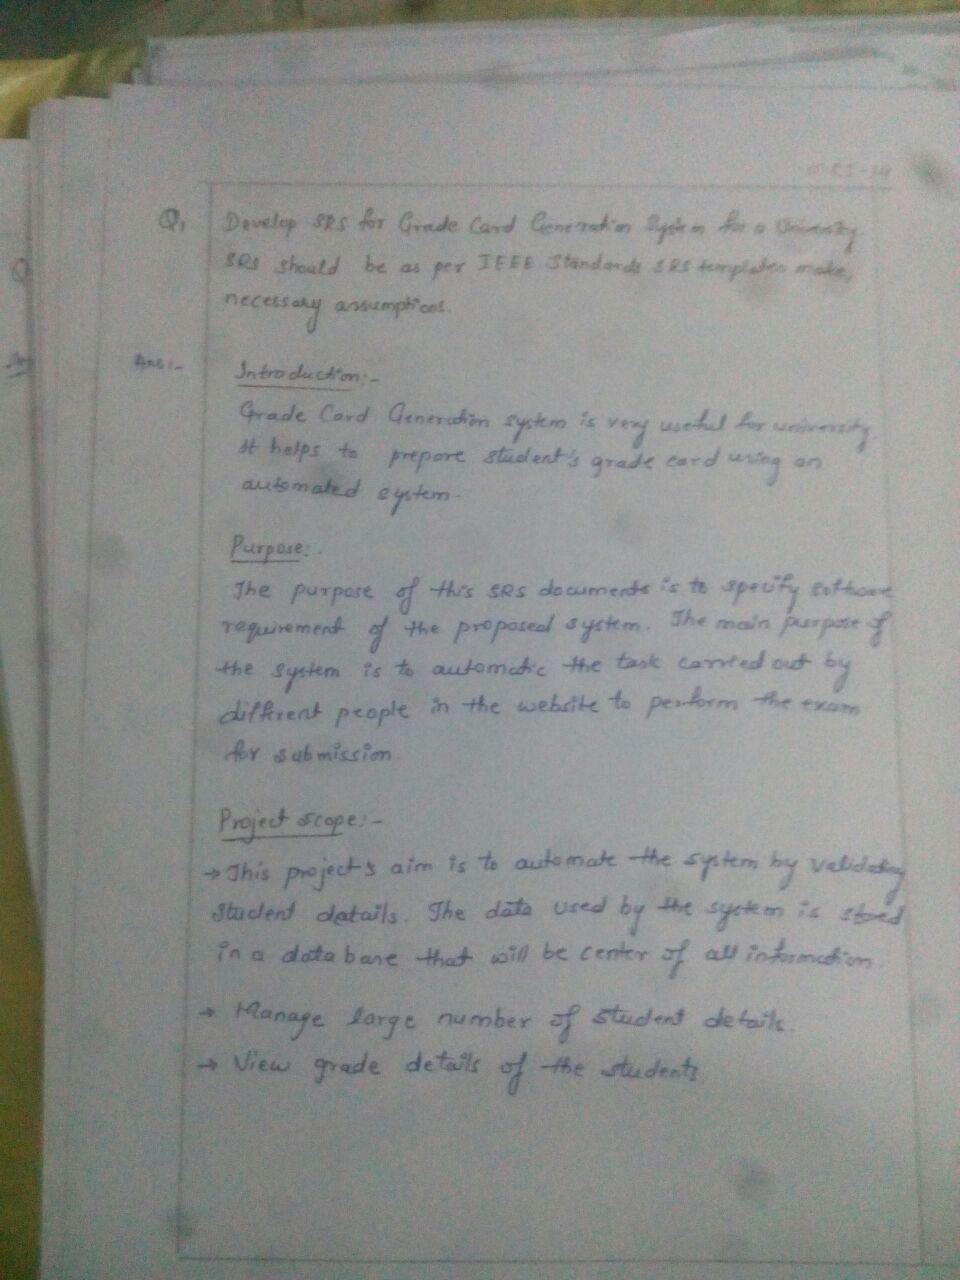 Q1 Develop SRS for Grade Card Generation System for a University
SRS should be as per IEEE Standards SRS template make
necessary assumptions.
Ans:-
Introduction:-
Grade Card Generation system is very useful for university.
It helps to prepare student's grade card using an
automated system.
Purpose:-
The purpose of this SRS documents is to specify software
requirement of the proposed system. The main purpose of
the system is to automatic the task carried out by
different people in the website to perform the exam
for submission.
Project scope:-
→ This project's aim is to automate the system by validating
student details. The data used by the system is stored
in a database that will be center of all information.
→ Manage large number of student details.
→ View grade details of the students
Q